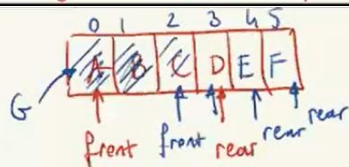 0 1 2 3 4 5
A B C D E F
G
front front rear rear rear